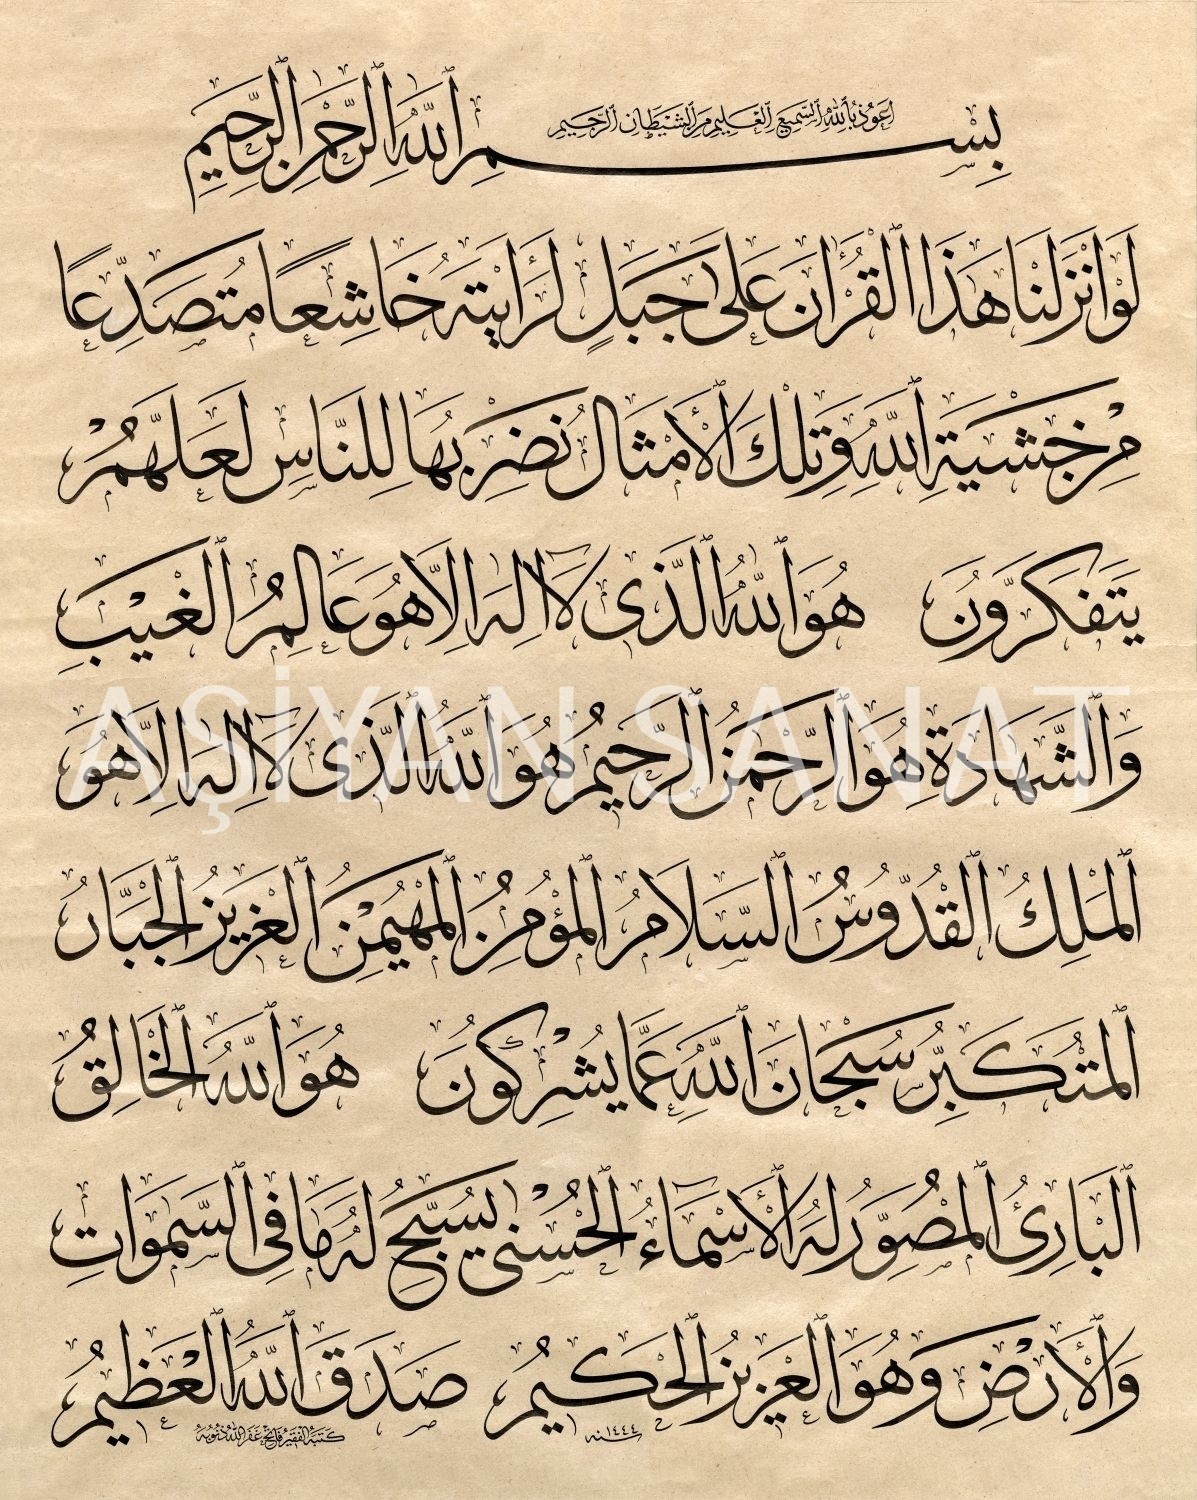 أعوذ بالله السميع العليم من الشيطان الرجيم
بسم الله الرحمن الرحيم
لو أنزلنا هذا القرآن على جبل لرأيته خاشعا متصدعا
من خشية الله وتلك الأمثال نضربها للناس لعلهم
يتفكرون هو الله الذي لا إله إلا هو عالم الغيب
والشهادة هو الرحمن الرحيم هو الله الذي لا إله إلا هو
AŞİYAN SANAT
الملك القدوس السلام المؤمن المهيمن العزيز الجبار
المتكبر سبحان الله عما يشركون هو الله الخالق
البارئ المصور له الأسماء الحسنى يسبح له ما في السموات
والأرض وهو العزيز الحكيم صدق الله العظيم
سنه ١٤٤٤
كتبه الفقير فاتح غفر الله ذنوبه